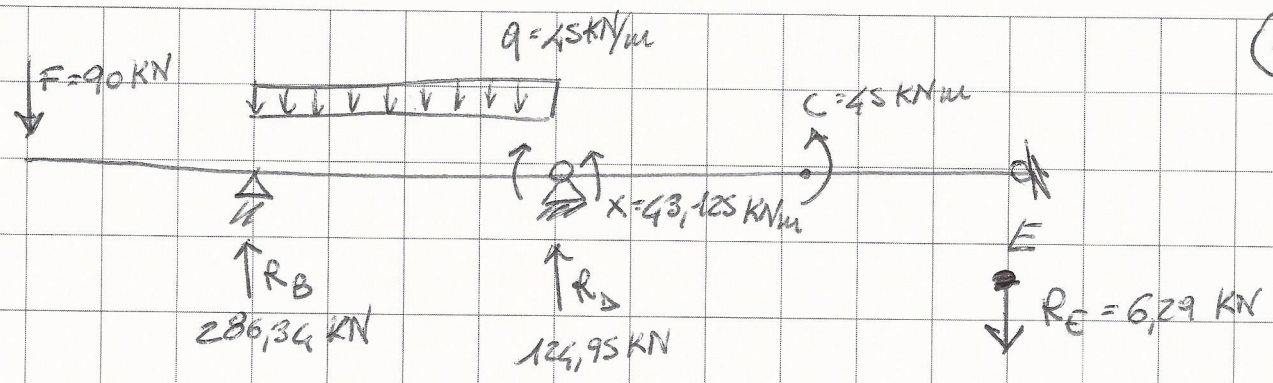 q=45KN/m
F=90 KN
C=45 KNm
X=43,125 KNm
E
RB
286,34 KN
RD
124,95 KN
RE = 6,29 KN